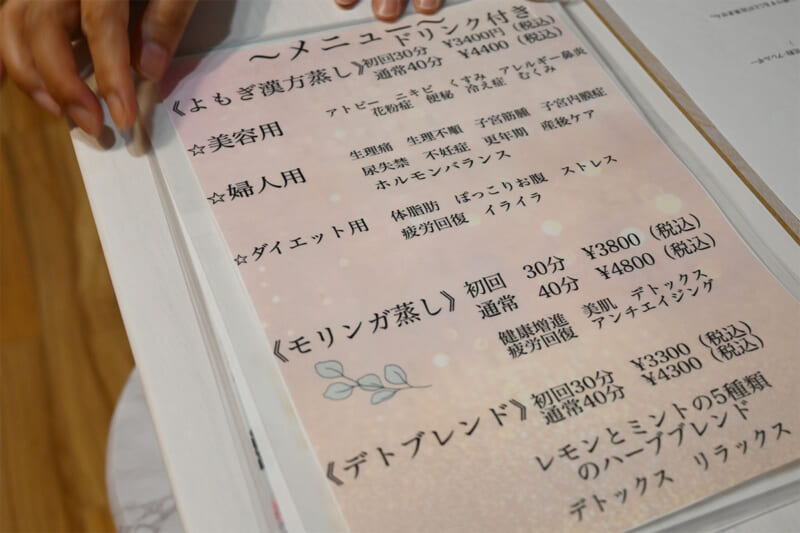 ～メニュー～ドリンク付き
《よもぎ漢方蒸し》初回30分 ¥3400円(税込)
通常40分 ¥4400 (税込)
☆美容用 アトピー ニキビ くすみ アレルギー鼻炎
花粉症 便秘 冷え症 むくみ
☆婦人用 生理痛 生理不順 子宮筋腫 子宮内膜症
尿失禁 不妊症 更年期 産後ケア
ホルモンバランス
☆ダイエット用 体脂肪 ぽっこりお腹 ストレス
疲労回復 イライラ
《モリンガ蒸し》初回 30分 ¥3800 (税込)
通常 40分 ¥4800 (税込)
健康増進 美肌 デトックス
疲労回復 アンチエイジング
《デトブレンド》初回30分 ¥3300 (税込)
通常40分 ¥4300 (税込)
レモンとミントの5種類
のハーブブレンド
デトックス リラックス